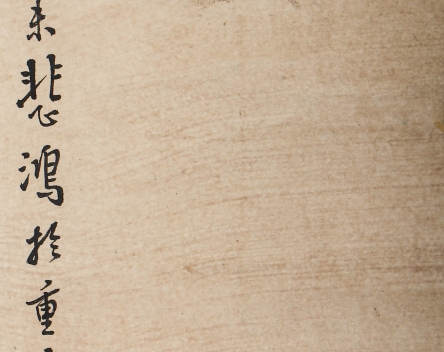 未悲鴻於重